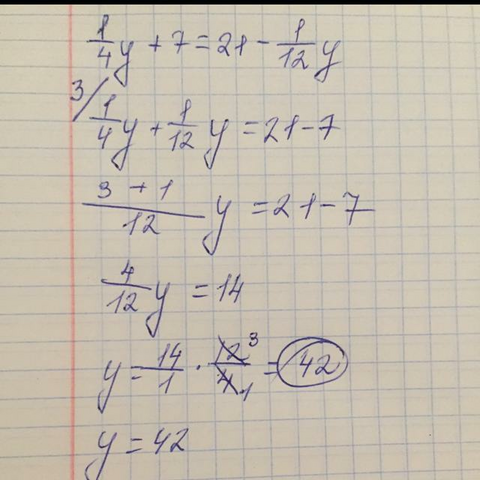 1/4 y + 7 = 21 - 1/12 y
3/ 1/4 y + 1/12 y = 21 - 7
3 + 1/12 y = 21 - 7
4/12 y = 14
y = 14/1 · 12 3/4 1 = 42
y = 42